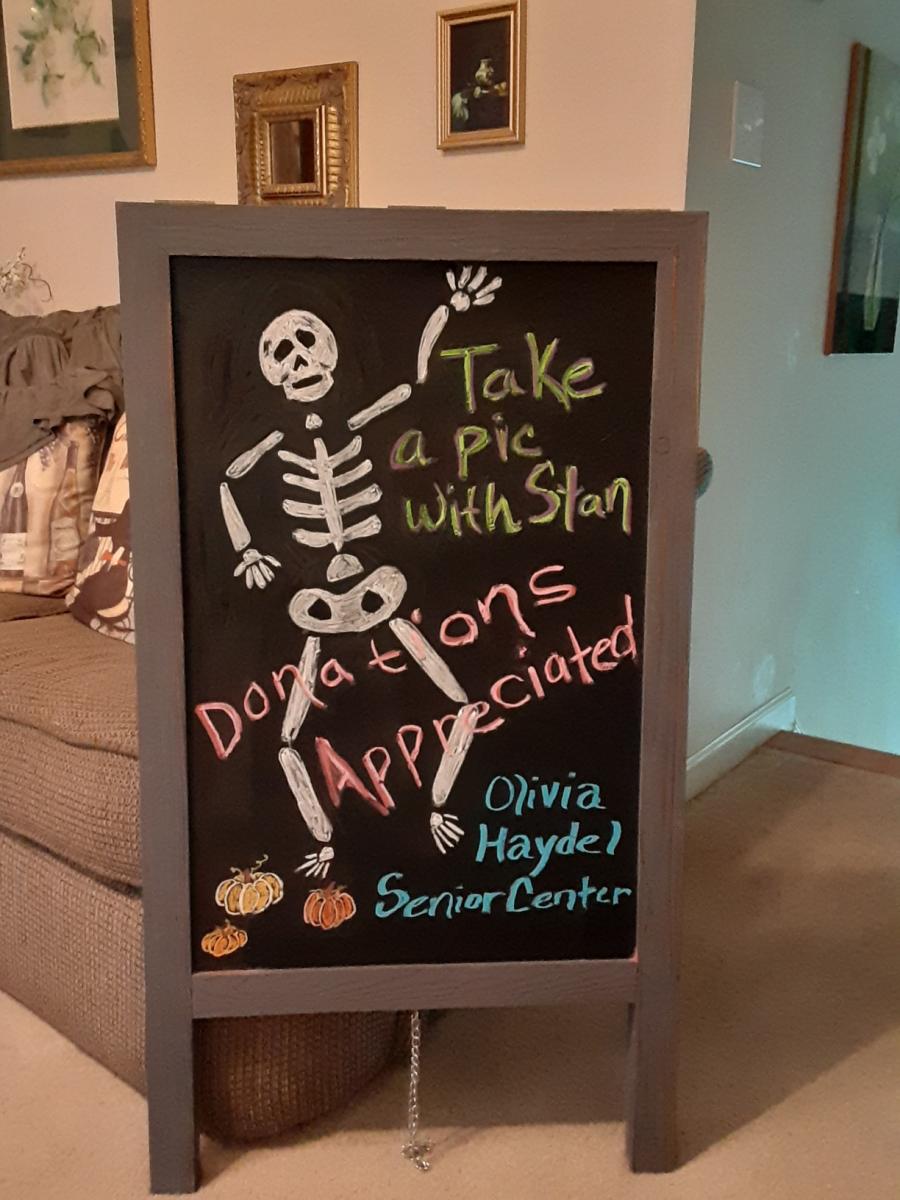 Take
a pic
with Stan
Donations
Appreciated
Olivia
Haydel
Senior Center